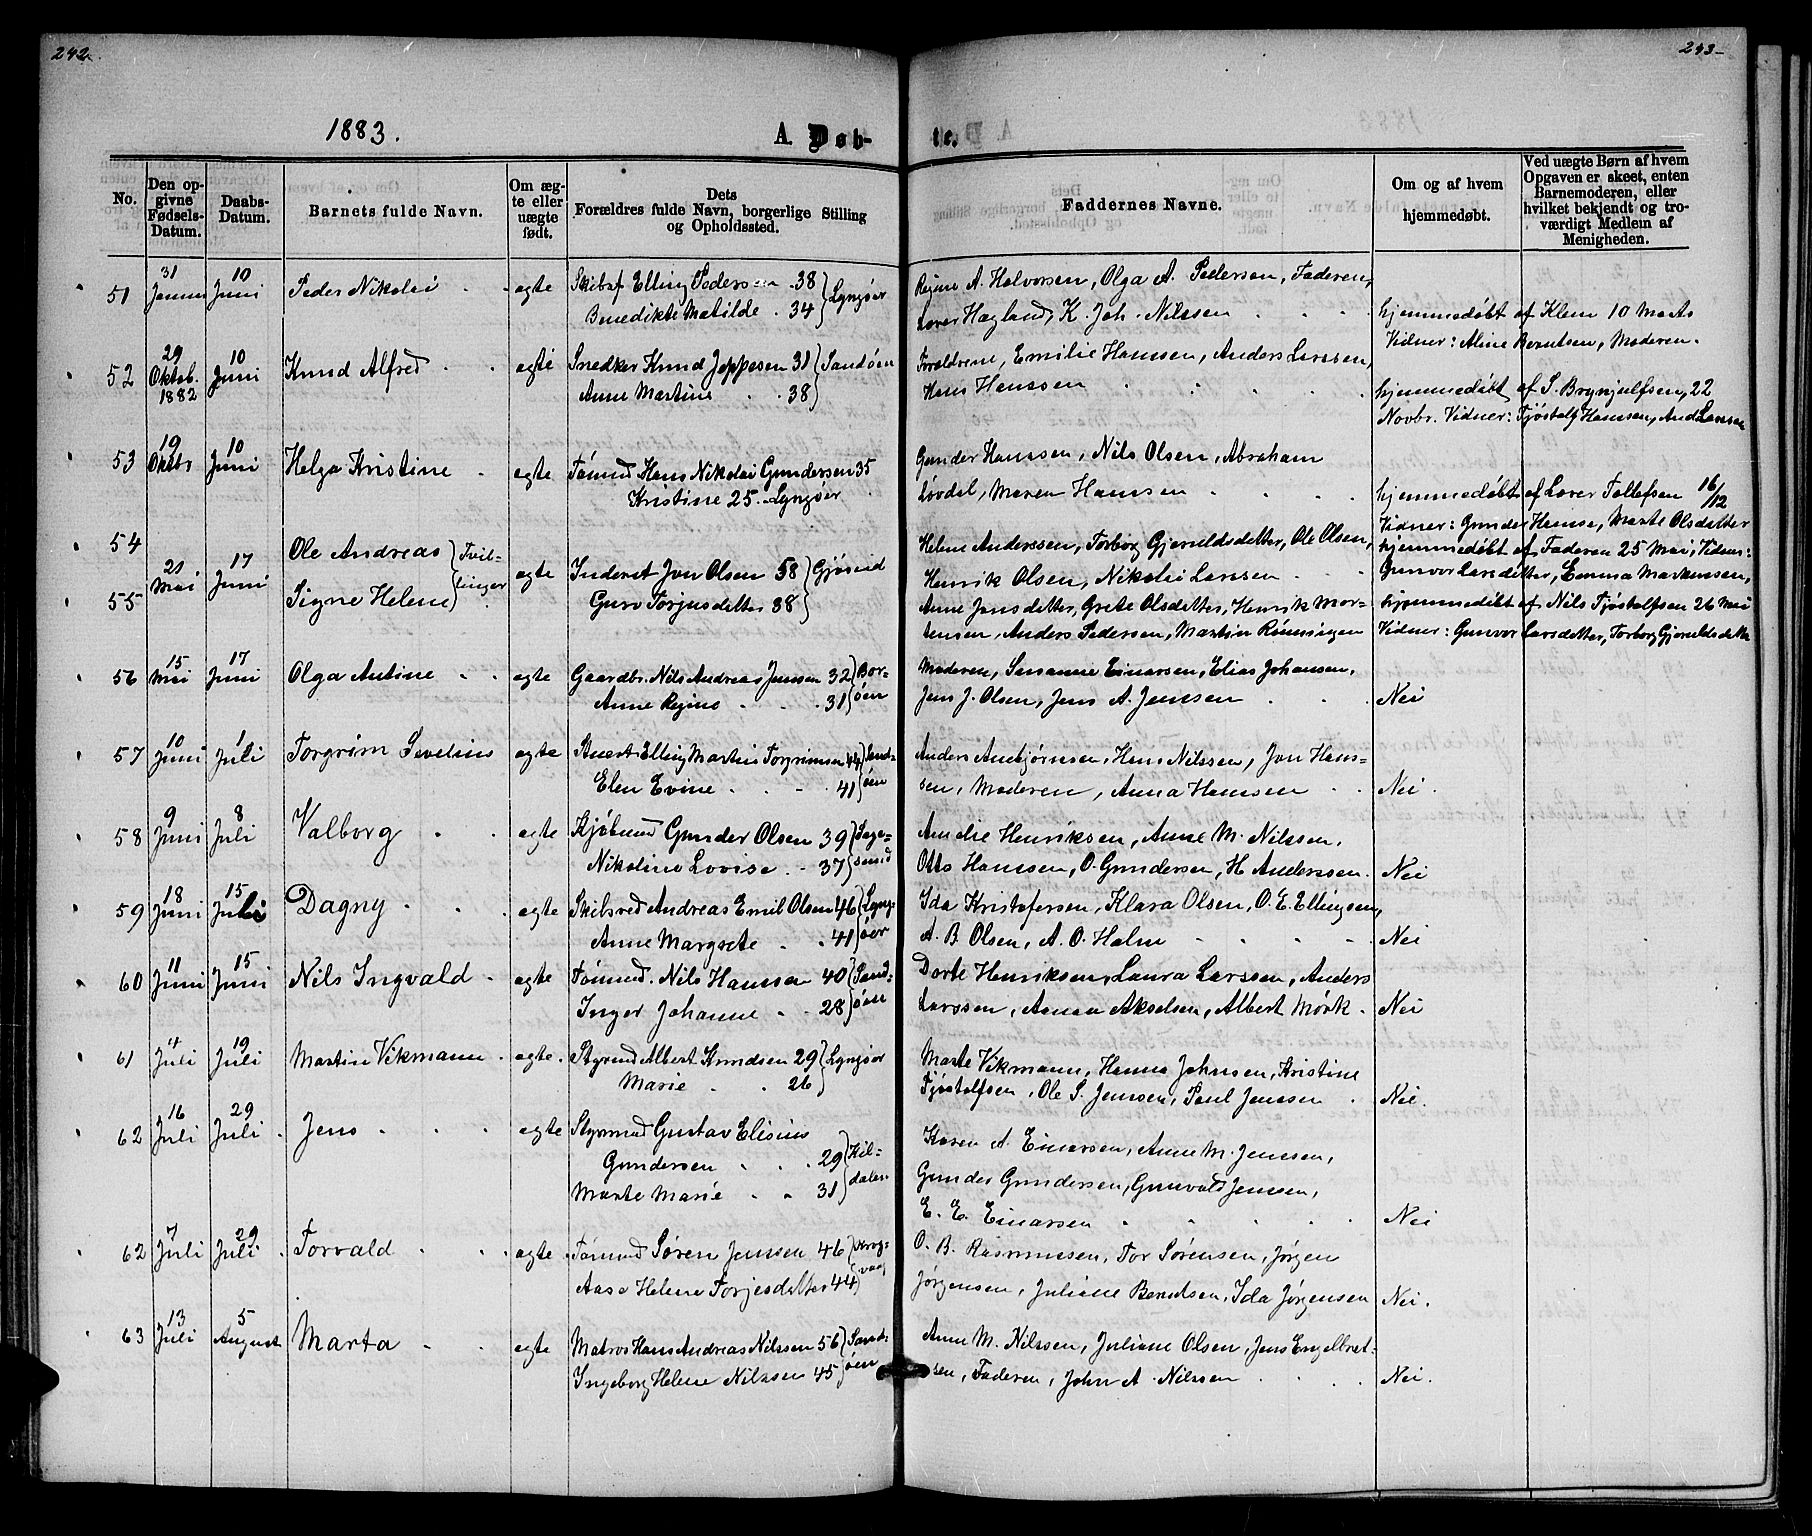 242.
243
1883.
A. Døb-
te.
No.
Den op-
givne
Fødsels-
Datum.
Daabs-
Datum.
Barnets fulde Navn.
Om æg-
te eller
uægte
født.
Dets
Forældres fulde Navn, borgerlige Stilling
og Opholdssted.
Faddernes Navne.
Om og af hvem
hjemmedøbt.
Ved uægte Børn af hvem
Opgaven er skeet, enten
Barnemoderen, eller
hvilket bekjendt og tro-
værdigt Medlem af
Menigheden.
51 31 10 Juni Peder Nikolai egte Skibsf Elling Pedersen 38 Lyngøer
Benedikte Matilde 34
A. Halvorsen, Olga A. Pedersen, Faderen,
Hagland, K. Joh. Nilssen
hjemmedøbt af Klem 10 Marts
Vidner: Aline Berntsen, Moderen.
52 29 Oktob. 1882 10 Juni Knud Alfred egte Snedker Knud Jeppesen 31 Sandøen
Anne Martine 38
Forældrene, Emilie Hanssen, Anders Larssen,
Hans Hanssen
hjemmedøbt af S. Brynjulfsen, 22
Novbr. Vidner: Tjøstolf Hanssen, And Larssen
53 19 Oktbr 10 Juni Helga Kristine egte Tømmd Hans Nikolai Gundersen 35
Kristine 25. Lyngøer
Gunder Hanssen, Nils Olsen, Abraham
Løvdal, Maren Hanssen
hjemmedøbt af Laver Tollefsen 16/12
Vidner: Gunder Hansen, Marte Olsdatter
54 Ole Andreas Tvil-
21 Mai 17 Juni egte Inderst Jon Olsen 58 Gjøsund
55 Signe Helene linger
Guro Torjusdatter 38
Helene Anderssen, Torborg Gjeruldsdatter, Ole Olsen,
Henrik Olsen, Nikolai Larssen
Anne Jonsdatter, Grete Olsdatter, Henrik Mor-
tensen, Anders Pedersen, Martin Rønningen
hjemmedøbt af Faderen 25 Mai, Vidner:
Gunvor Larsdatter, Emma Markussen,
hjemmedøbt af Nils Tjøstolfsen 26 Mai
Vidner: Gunvor Larsdatter, Torborg Gjeruldsdatter
56 15 Mai 17 Juni Olga Antine egte Gaardbr. Nils Andreas Jenssen 32 Bor-
Anne Regine 31 øen
Moderen, Susanne Einarsen, Elias Johansen,
Jens J. Olsen, Jens A. Jenssen
Nei
57 10 Juni 1 Juli Torgrim Sevelius egte Stuert Elling Martin Torgrimsen 44 Sand-
Elen Evine 41 øen
Anders Anbjørnsen, Hans Nilssen, Jon Hans-
sen, Moderen, Anna Hanssen
Nei
58 9 Juni 8 Juli Valborg egte Kjøbmd Gunder Olsen 39 Sage-
Nikoline Lovise 37 sund
Amalie Henriksen, Anne M. Nilssen,
Otto Hanssen, O. Gundersen, H Anderssen
Nei
59 18 Juni 15 Juli Dagny egte Skibsred Andreas Emil Olsen 46 Lyng-
Anne Margrete 41 øer
Ida Kristofersen, Klara Olsen, O. E. Ellingsen,
A. B Olsen, A. O. Holm
Nei
60 11 Juni 15 Juni Nils Ingvald egte Tømmd. Nils Hanssen 40 Sand-
Inger Johanne 28 øen
Dorte Henriksen, Laura Larssen, Anders
Larssen, Anna Akselsen, Albert Mørk
Nei
61 4 Juli 19 Juli Martin Vikmann egte Styrmd Albert Knudsen 29 Lyngøer
Marie 26
Marte Vikmann, Hanna Johnsen, Kristine
Tjøstolfsen, Ole S. Jenssen, Paul Jenssen
Nei.
62 16 Juli 29 Juli Jens egte Styrmd Gustav Elisius
Gundersen 29 Kil-
Marte Marie 31 dalen
Karen A. Einarsen, Anne M. Jenssen,
Gunder Gundersen, Gunvald Jenssen,
E. E. Einarsen
Nei
62 7 Juli 29 Juli Torvald egte Tømmd Søren Jenssen 46 Krog-
Aase Helene Torjesdatter 44 vaag
O. B. Rasmussen, Tor Sørensen, Jørgen
Jørgensen, Juliane Berntsen, Ida Jørgensen
Nei.
63 13 Juli 5 August Marta egte Matros Hans Andreas Nilssen 56 Sand-
Ingeborg Helene Nilssen 45 øen
Anne M. Nilssen, Juliane Olsen, Jens Engelbret-
sen, Faderen, John A. Nilssen
Nei.